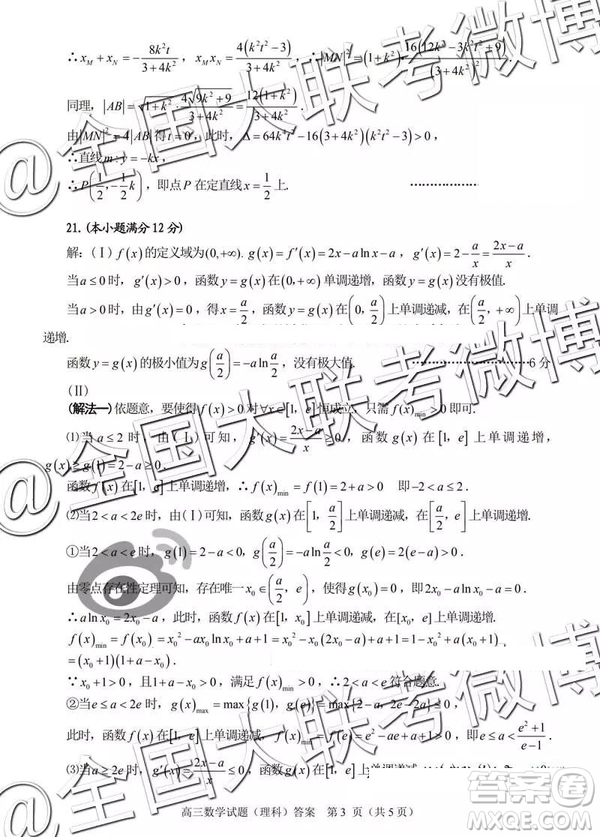 ∴x_M+x_N=-8k²t/(3+4k²), x_M x_N=4(k²t²-3)/(3+4k²)
同理,|AB|=√(1+k²)·4√(9k²+9)/(3+4k²)=12(1+k²)/(3+4k²).
由|MN|²=4|AB|得t=0,此时,Δ=64k⁴t²-16(3+4k²)(k²t²-3)>0,
∴直线m:y=-kx,
∴P(1/2,-1/2k),即点P在定直线x=1/2上.
21.(本小题满分12分)
解:(Ⅰ)f(x)的定义域为(0,+∞). g(x)=f′(x)=2x-alnx-a, g′(x)=2-a/x=(2x-a)/x.
当a≤0时,g′(x)>0,函数y=g(x)在(0,+∞)单调递增,函数没有极值.
当a>0时,由g′(x)=0,得x=a/2,函数y=g(x)在(0,a/2)上单调递减,在(a/2,+∞)上单调
递增.
函数y=g(x)的极小值为g(a/2)=-aln a/2,没有极大值. 6分
(Ⅱ)
(解法一)依题意,要使得f(x)>0对∀x∈[1,e]恒成立,只需f(x)min>0即可.
(1)当a≤2时,由(Ⅰ)可知,g′(x)=(2x-a)/x≥0,函数g(x)在[1,e]上单调递增,
g(x)≥g(1)=2-a≥0,
函数f(x)在[1,e]上单调递增,∴f(x)min=f(1)=2+a>0 即-2<a≤2.
(2)当2<a<2e时,由(Ⅰ)可知,函数g(x)在[1,a/2)上单调递减,在[a/2,e]上单调递增.
①当2<a<e时,g(1)=2-a<0,g(a/2)=-aln a/2<0,
由零点存在性定理可知,存在唯一x₀∈(a/2,e),使得g(x₀)=0,即2x₀-alnx₀-a=0,
∴alnx₀=2x₀-a,此时,函数f(x)在[1,x₀]上单调递减,在[x₀,e]上单调递增.
f(x)min=f(x₀)=x₀²-ax₀lnx₀+(a+1)=x₀²-x₀(2x₀-a)+a+1=-x₀²+ax₀+a+1=-(x₀²-1)+a(x₀+1)
=(x₀+1)(1+a-x₀).
∵x₀+1>0,且1+a-x₀>0,满足f(x)min>0,∴2<a<e符合题意.
g(x)max=max{g(1),g(e)}=max{2-a,
此时,函数f(x)在[1,e]上单调递减,f(x)min=f(e)=e²-ae+a+1>0,即e≤a<(e²+1)/(e-1).
(3)当a≥2e时,g′(x)=(2x-a)/x
高三数学试题(理科)答案 第3页(共5页)
@全国大联考微博
@全国大联考微博
@全国大联考微博
答案圈
MXQE.COM